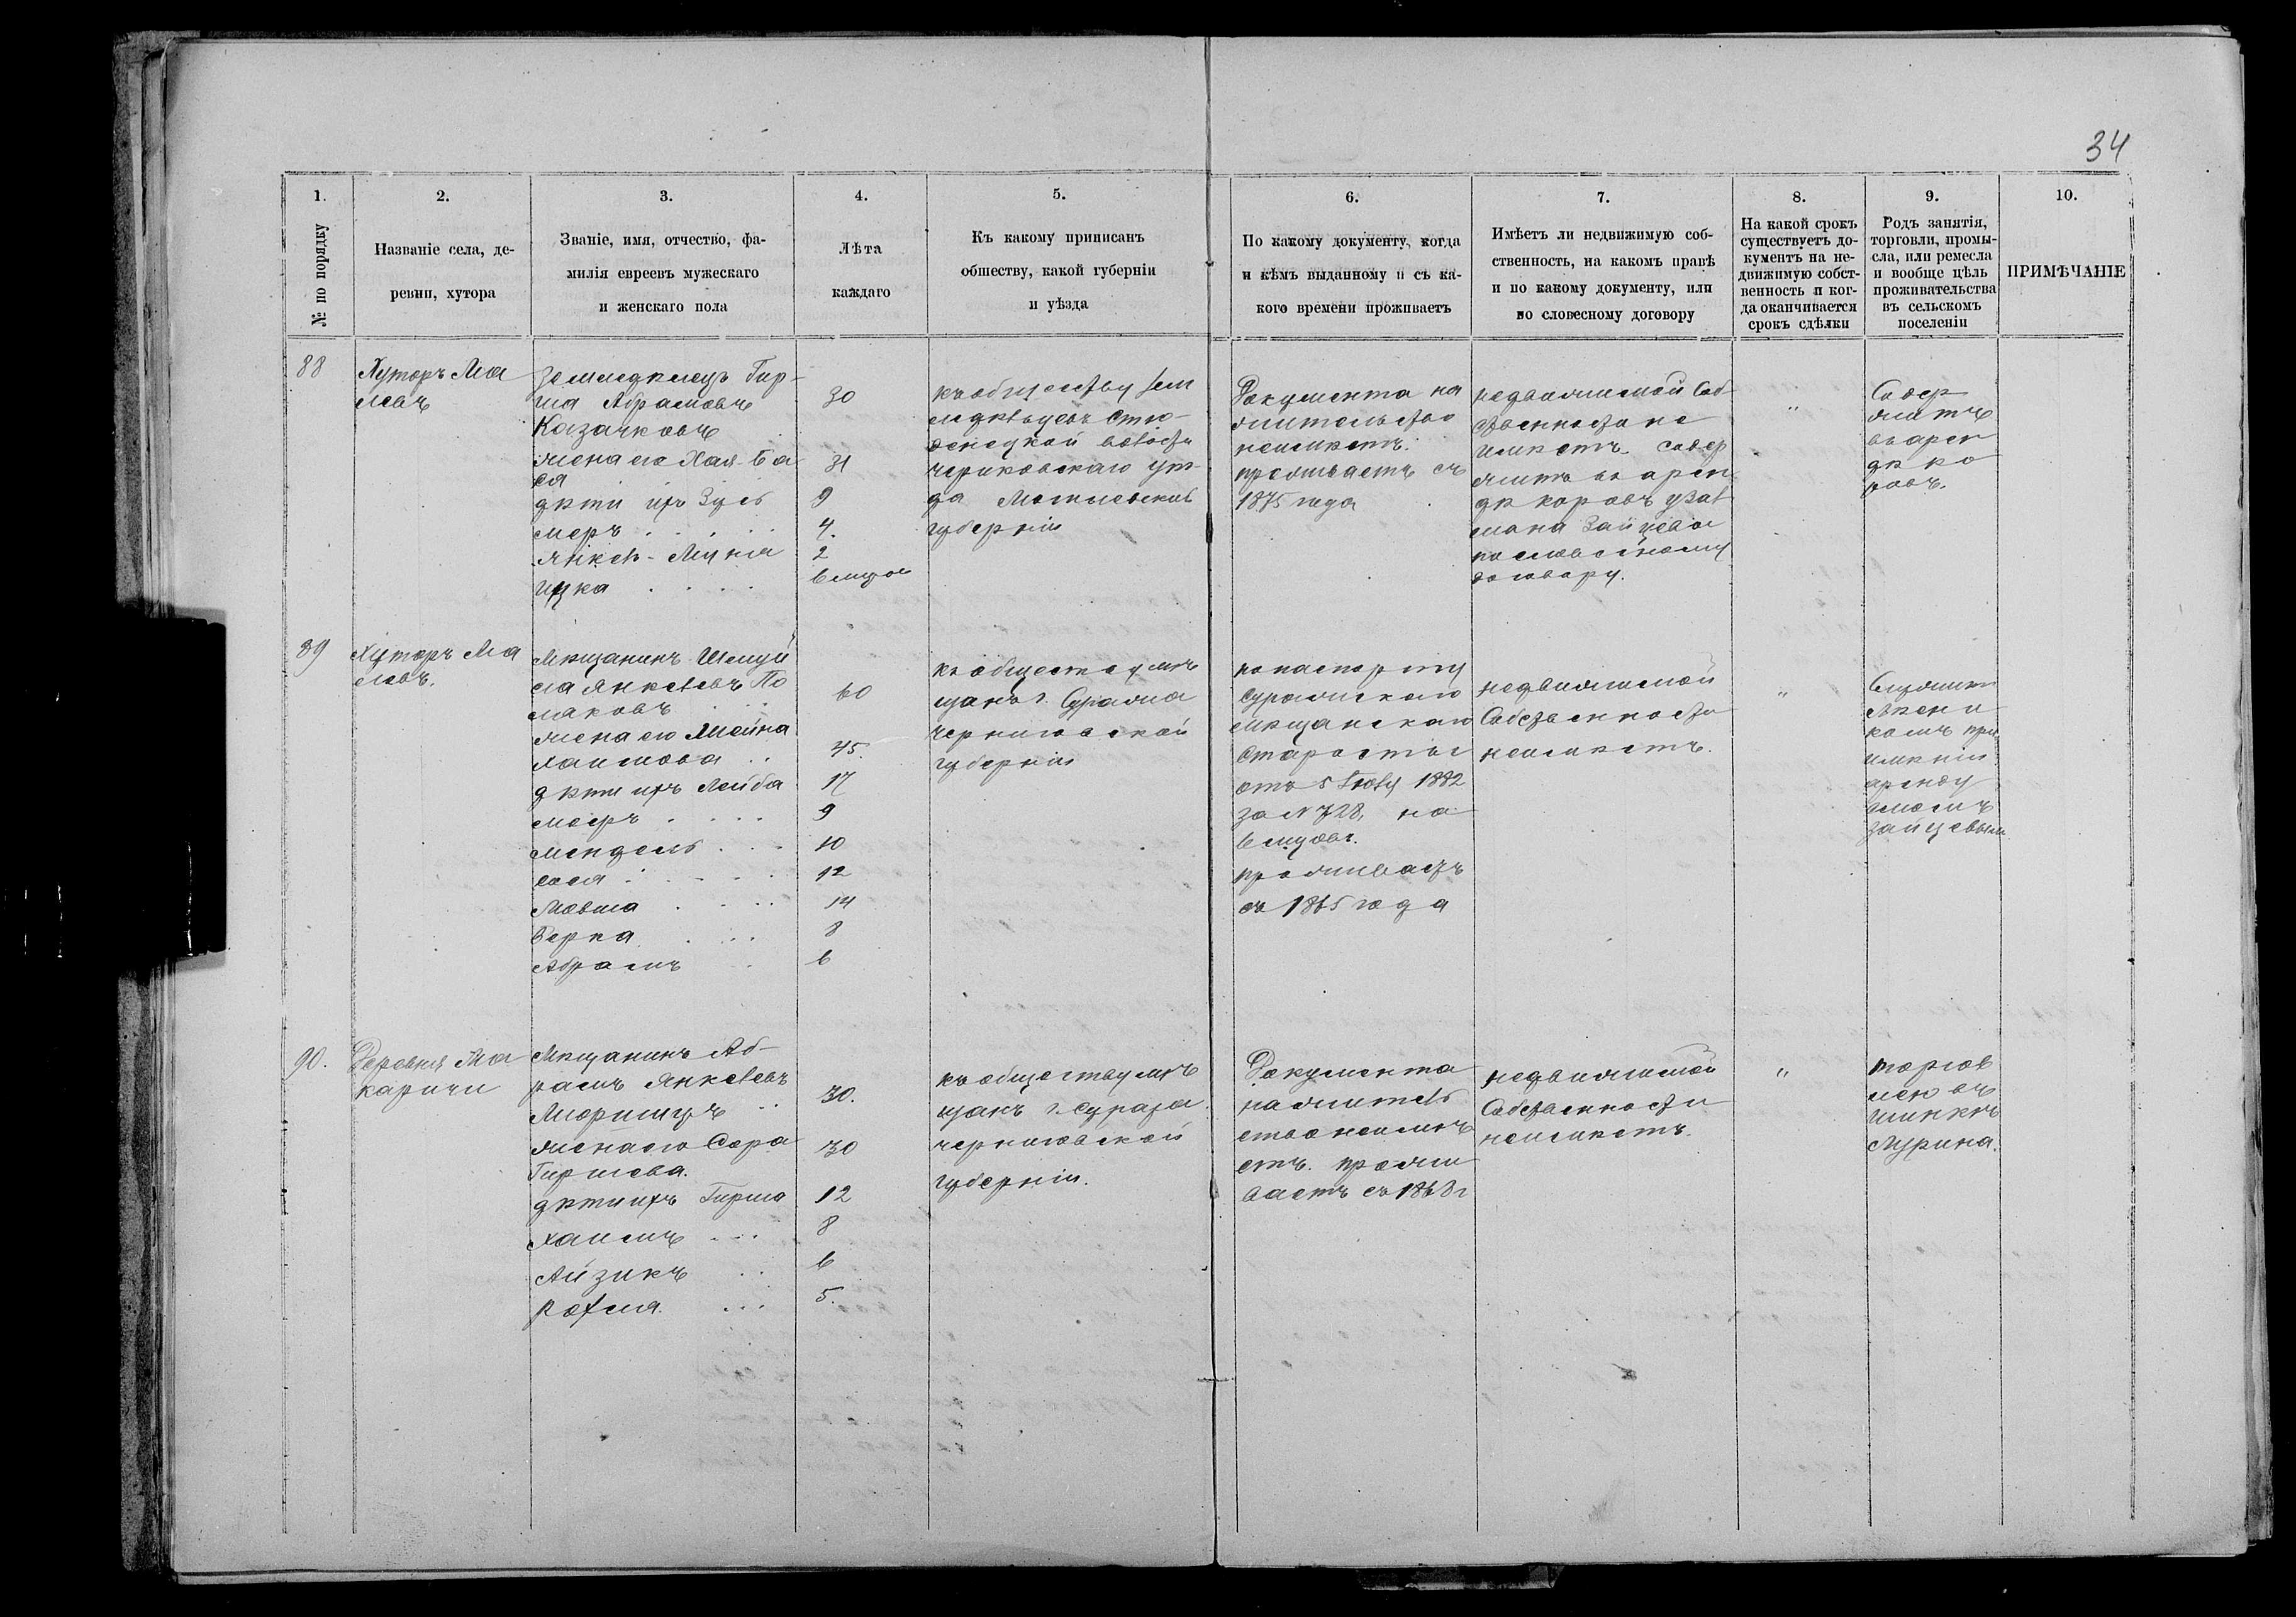 34
1.
№ по порядку
2.
Названіе села, де-
ревни, хутора
3.
Званіе, имя, отчество, фа-
милія евреевъ мужескаго
и женскаго пола
4.
Лѣта
каждаго
5.
Къ какому приписанъ
обществу, какой губерніи
и уѣзда
6.
По какому документу, когда
и кѣмъ выданному и съ ка-
кого времени проживаетъ
7.
Имѣетъ ли недвижимую соб-
ственность, на какомъ правѣ
и по какому документу, или
по словесному договору
8.
На какой срокъ
существуетъ до-
кументъ на не-
движимую собст-
венность и ког-
да оканчивается
срокъ сдѣлки
9.
Родъ занятія,
торговли, промы-
сла, или ремесла
и вообще цѣль
проживательства
въ сельскомъ
поселеніи
10.
ПРИМѢЧАНІЕ
88
Хуторъ Ма
левъ
Земледѣлецъ Гир-
ша Абрамовъ
Козачковъ
жена его Хая-Ба
ся
дѣти ихъ Зусь
меръ
Янкель-Муня
Ицка
30
31
9
4.
2
6 мѣсяц
къ обществу зем
ледѣльцевъ Стю-
денецкой волости
Чериковскаго уѣз-
да Могилевской
губерніи
Документа на
жительство
неимѣетъ.
проживаетъ съ
1875 года
недвижимой соб-
ственности не
имѣетъ. содер
житъ въ арен
дѣ коровъ у
Зайцева
по словесному
договору.
"
Содер
житъ
въ арен
дѣ ко
ровъ.
89
Хуторъ Ма
левъ.
Мѣщанинъ Шмуй
ла Янкелевъ По
ляковъ
жена его Шейна
Хаимова
дѣти ихъ Лейба
меръ
Мендель
Сося
Мовша
Берка
Абрамъ
60
45.
17
9
10
12
14
8
6
къ обществу мѣ
щанъ г. Суража
Черниговской
губерніи
по паспорту
Суражскаго
мѣщанскаго
старосты
отъ 5 Іюля 1882
за N 728, на
6 мѣсяц.
проживаетъ
съ 1865 года
недвижимой
собственности
неимѣетъ.
"
Служитъ
при
имѣніи
аренду
емомъ
Зайцевымъ
90.
Деревня Ма
каричи
Мѣщанинъ Аб-
рамъ Янкелевъ
жена его Сора
Гиршева.
дѣти ихъ Гирша
Хаимъ
Айзикъ
30.
30
12
8
6
5.
къ обществу мѣ
щанъ г. Суража
Черниговской
губерніи.
Документа
на житель
ство неимѣ
етъ. прожи
ваетъ съ 1868 г
недвижимой
собственности
неимѣетъ.
"
торгов
лею въ
шинкѣ